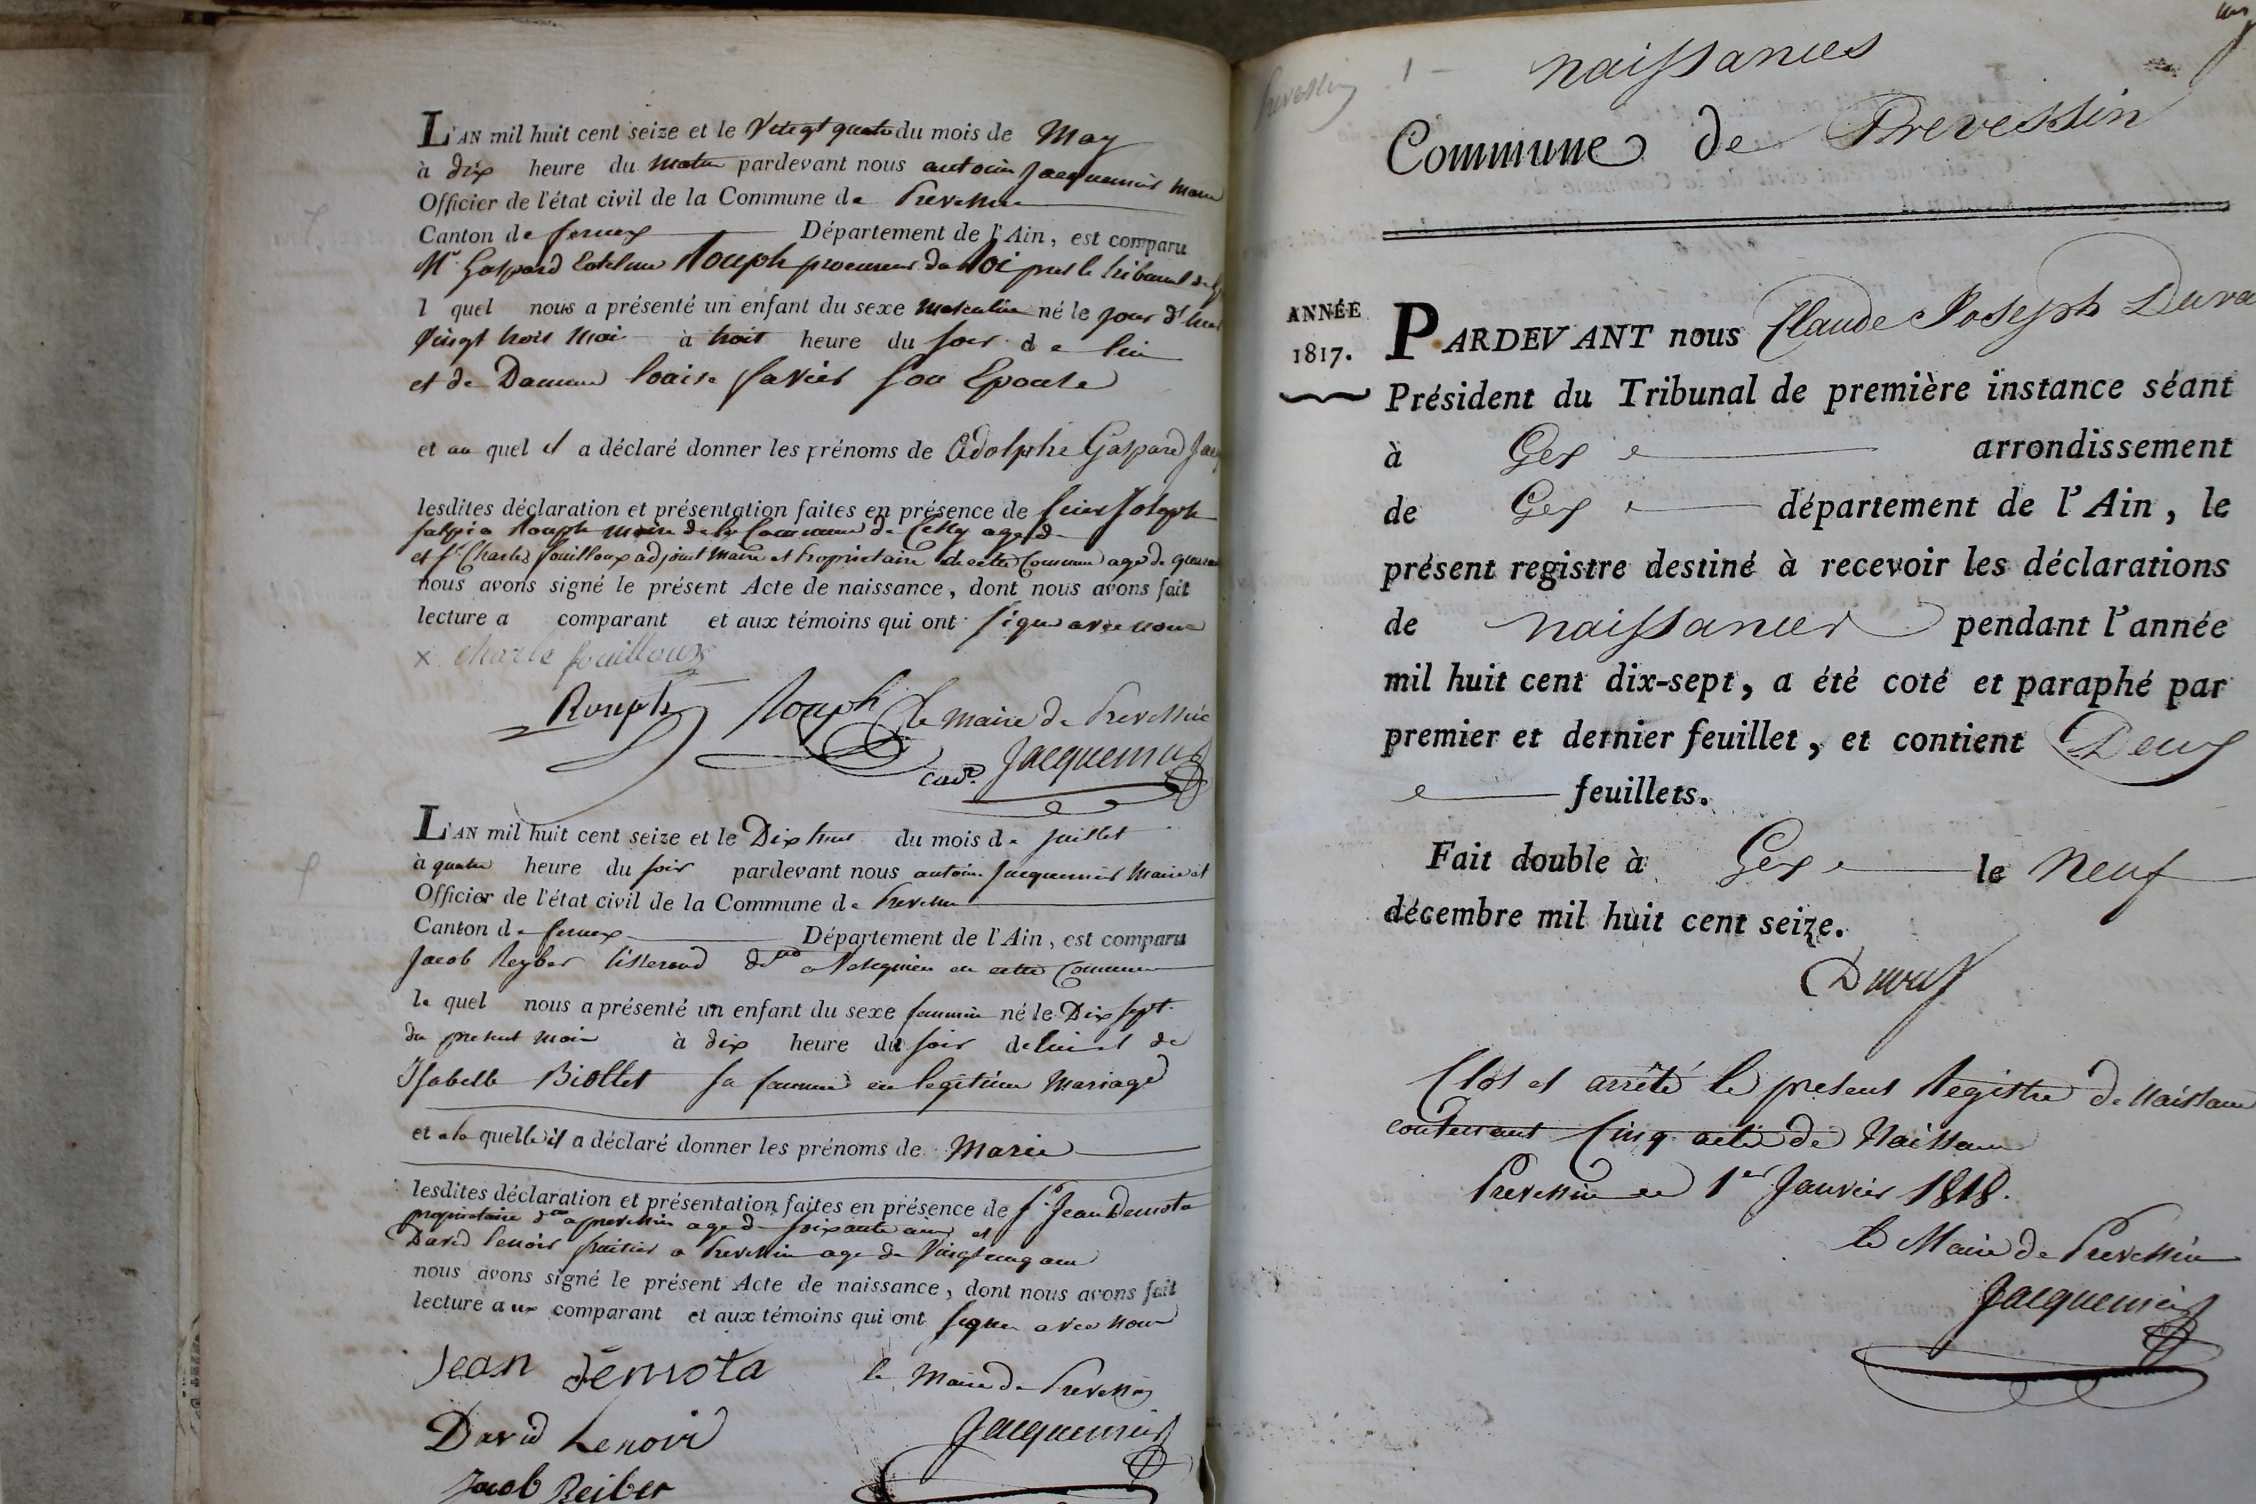 L'AN mil huit cent seize et le Vingt quatre du mois de May
à dix heure du matin pardevant nous antoine Jacquemier maire
Officier de l'état civil de la Commune de Prevessin
Canton de fernex Département de l'Ain, est comparu
Mr Gaspard Rouph procureur du Roi pres le tribunal de
l quel nous a présenté un enfant du sexe masculin né le jour d'hier
Vingt trois mai à huit heure du soir de lui
et de Damme loaise favier son Epouse
et au quel il a déclaré donner les prénoms de Adolphe Gaspard
lesdites déclaration et présentation faites en présence de Joseph
Rouph maire de la Commune de Cessy agé de
et Sr Charles fouilloux adjoint maire et Proprietaire de cette Commune agé de
nous avons signé le présent Acte de naissance, dont nous avons fait
lecture a comparant et aux témoins qui ont signé avec nous
x Charle fouilloux
Rouph Rouph le maire de Prevessin
Jacquemier
L'AN mil huit cent seize et le Dix huit du mois de Juillet
à quatre heure du soir pardevant nous antoine Jacquemier Maire et
Officier de l'état civil de la Commune de Prevessin
Canton de fernex Département de l'Ain, est comparu
Jacob Reyber tisserand en cette Commune
le quel nous a présenté un enfant du sexe feminin né le Dix sept
du present mois à dix heure du soir de lui et de
Isabelle Biollet sa femme en legitime Mariage
et a la quelle il a déclaré donner les prénoms de Marie
lesdites déclaration et présentation faites en présence de Sr Jean Demota
proprietaire a prevessin agé de soixante ans et
David Lenoir fruitier a Prevessin age de Vingt cinq ans
nous avons signé le présent Acte de naissance, dont nous avons fait
lecture aux comparant et aux témoins qui ont signer avec nous
Jean Demota le Maire de Prevessin
David Lenoir Jacquemier
Jacob Reiber
Prevessin 1
naissances
Commune de Prevessin
ANNÉE
1817.
PARDEVANT nous Claude Joseph Duva
Président du Tribunal de première instance séant
à Gex arrondissement
de Gex département de l'Ain, le
présent registre destiné à recevoir les déclarations
de naissances pendant l'année
mil huit cent dix-sept, a été coté et paraphé par
premier et dernier feuillet, et contient Deux
feuillets.
Fait double à Gex le neuf
décembre mil huit cent seize.
Clos et arrêté le present Registre de Naissance
contenant Cinq acte de Naissance
Prevessin ce 1er Janvier 1818.
le Maire de Prevessin
Jacquemier